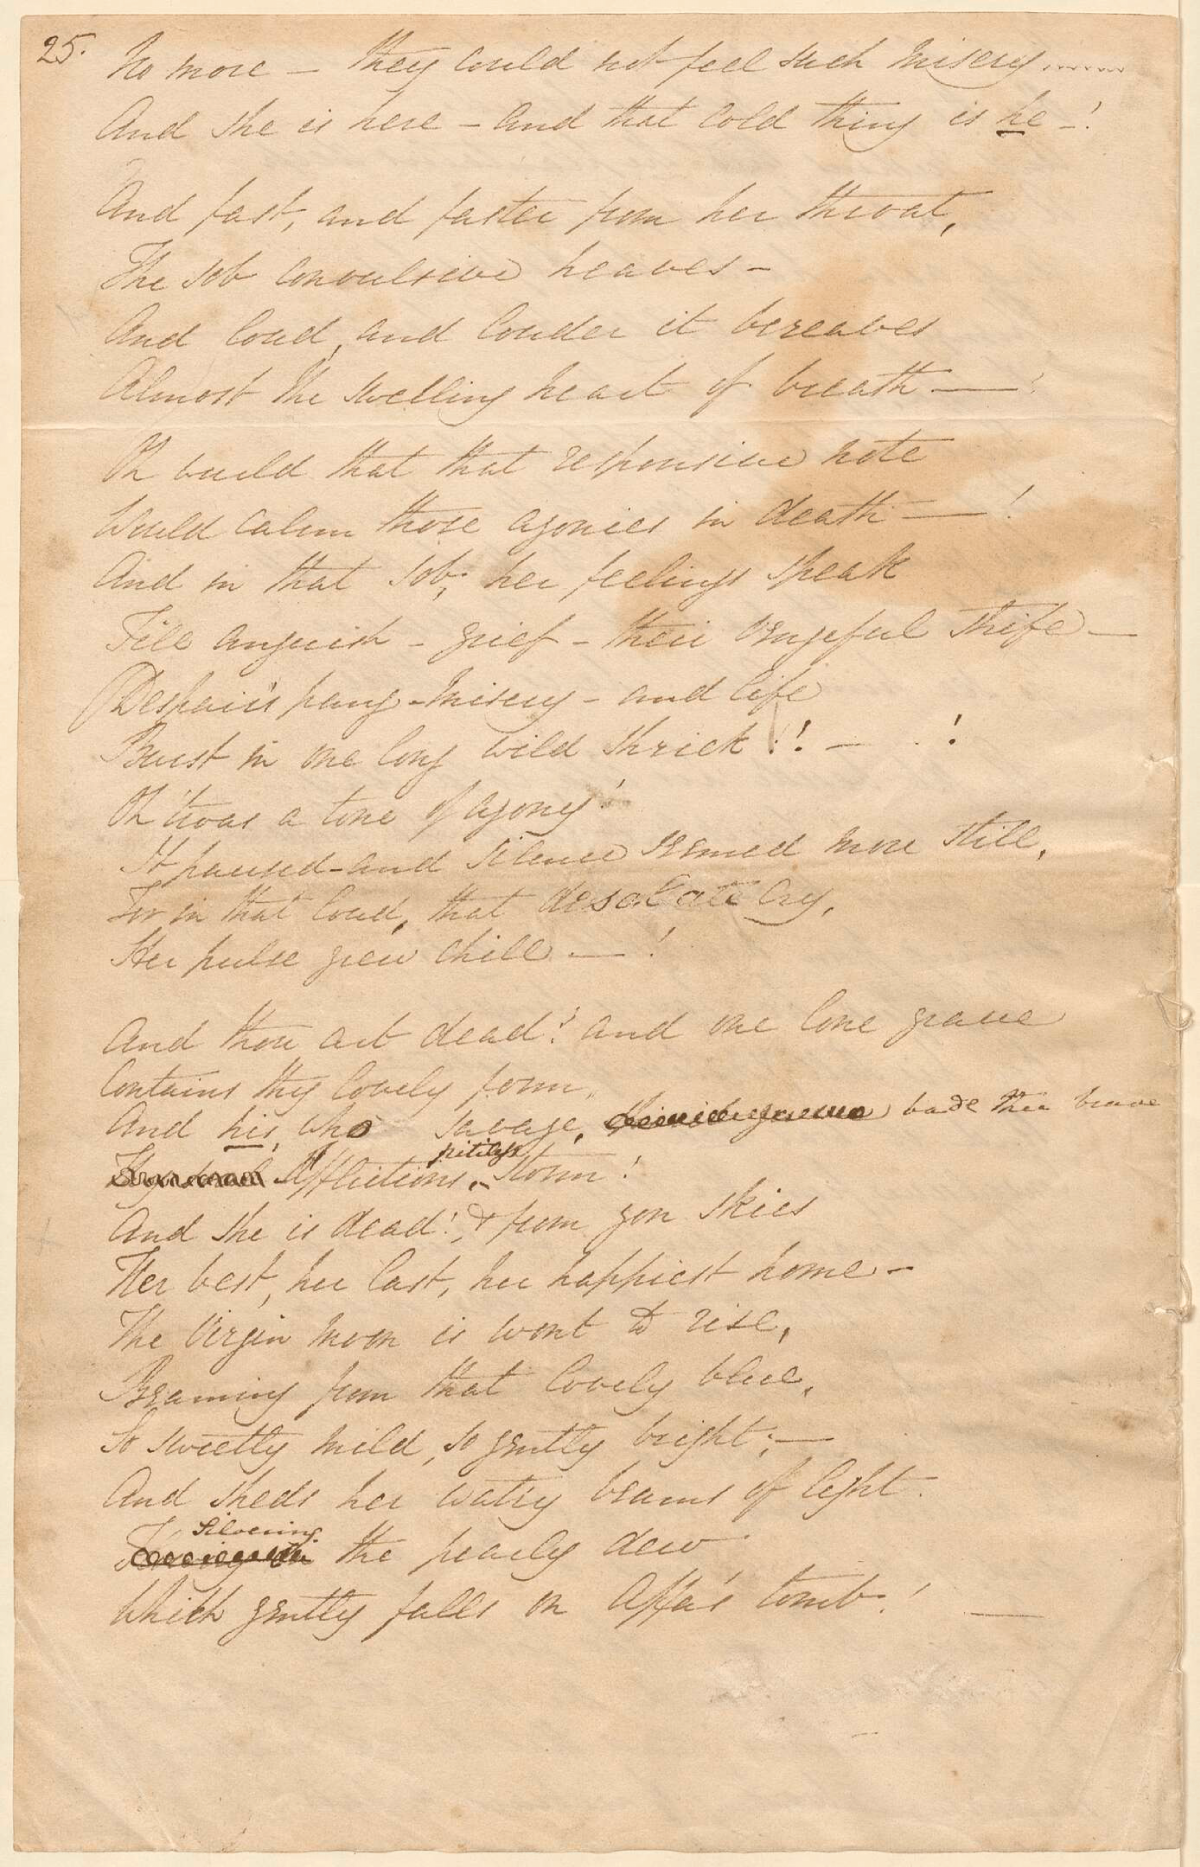 25.
No more – they could not feel such misery.......
And she is here – and that cold thing is he –!
And fast, and faster from her throat,
The sob convulsive heaves –
And loud, and louder it bereaves
Almost the swelling heart of breath —!
Oh could that that responsive note
Would calm those agonies in death —!
And in that sob, her feelings speak
Till anguish – grief – their vengeful strife –
Despair's pang – misery – and life
Burst in one long wild shriek!! – . !
Oh 'twas a tone of agony!
It paused – and silence seemed more still,
For in that loud, that desolate cry,
Her pulse grew chill —!
And thou art dead! and one lone grave
Contains thy lovely form,
And his, who savage, bade thee brave
pitiless
Affliction's, storm!
And she is dead!, & from yon skies
Her best, her last, her happiest home –
The Virgin moon is wont to rise,
Beaming from that lovely blue,
So sweetly mild, so gently bright; —
And sheds her watry beams of light.
Silvering
the pearly dew
Which gently falls on Affa's tomb! —